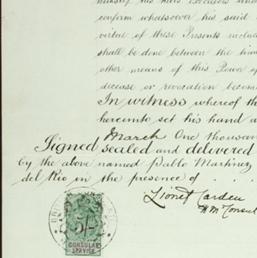 ministry his heirs Executors and
confirm whatsoever his said
virtue of these Presents includ
shall be done between the time
other means of this Power of
decease or revocation becom
In witness whereof th
hereunto set his hand a
March One thousan
Signed sealed and delivered
by the above named Pablo Martinez
del Rio in the presence of . . .
Lionel Carden
H.M. Consul
5/-
CONSULAR
SERVICE